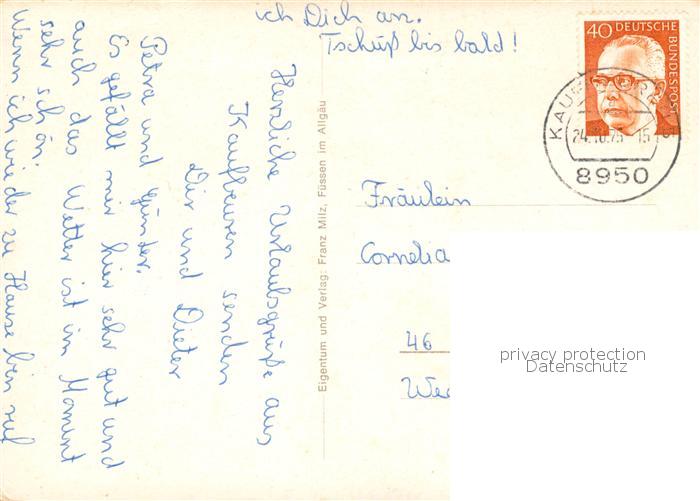 Herzliche Urlaubsgrüße aus
Kaufbeuren senden
Dir und Dieter
Petra und Günter.
Es gefällt mir hier sehr gut und
auch das Wetter ist im Moment
sehr schön.
Wenn ich wieder zu Hause bin ruf
ich Dich an.
Tschüß bis bald!
Eigentum und Verlag: Franz Milz, Füssen im Allgäu
40 DEUTSCHE BUNDESPOST
24.10.75 15
8950
Fräulein
Cornelia
46
privacy protection
Datenschutz